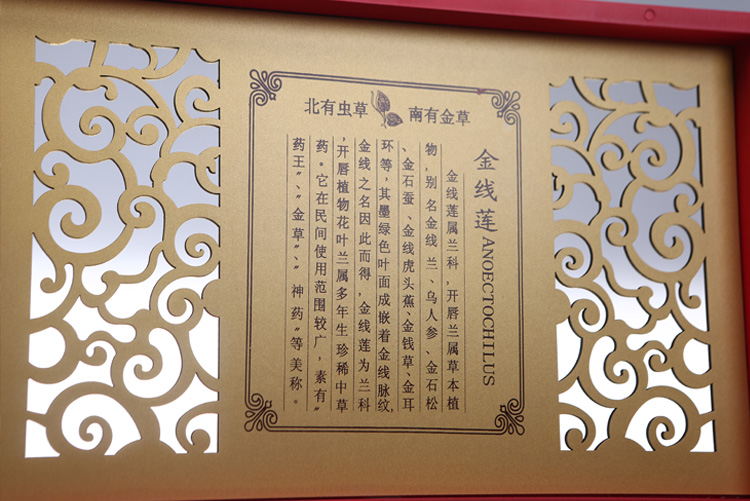 北有虫草 南有金草
金线莲 ANOECTOCHILUS
金线莲属兰科，开唇兰属草本植
物，别名金线兰、乌人参、金石松
、金石蚕、金线虎头蕉、金钱草、金耳
环等，其墨绿色叶面成嵌着金线脉纹，
金线之名因此而得，金线莲为兰科
，开唇植物花叶兰属多年生珍稀中草
药。它在民间使用范围较广，素有“
药王”、“金草”、“神药”等美称。